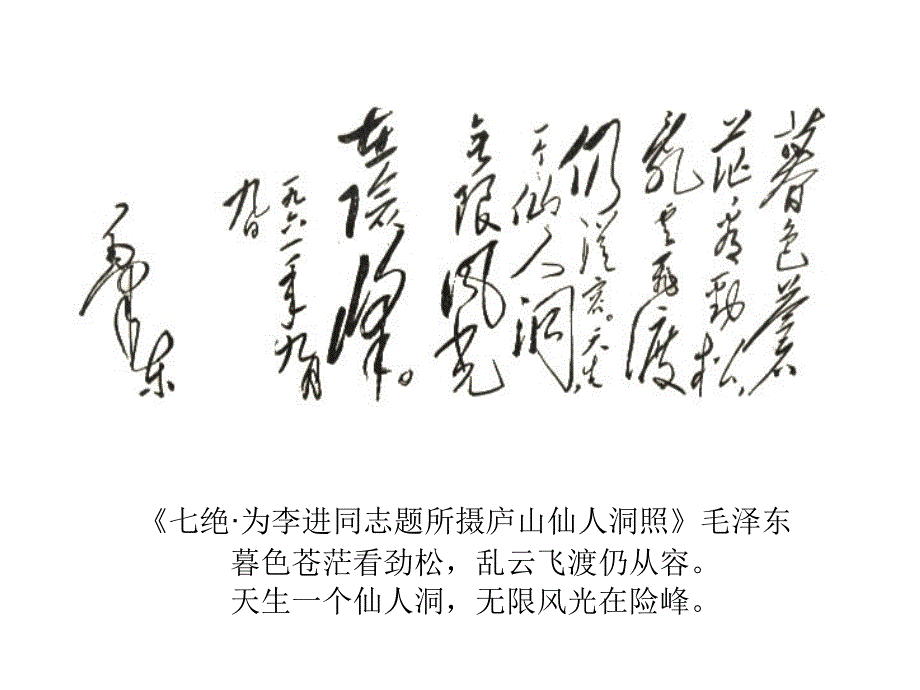 暮色蒼
茫看勁松，
亂雲飛渡
仍從容。天生
一个仙人洞
無限風光
在險峰。
一九六一年九月
九日
毛澤東
《七绝·为李进同志题所摄庐山仙人洞照》毛泽东
暮色苍茫看劲松，乱云飞渡仍从容。
天生一个仙人洞，无限风光在险峰。